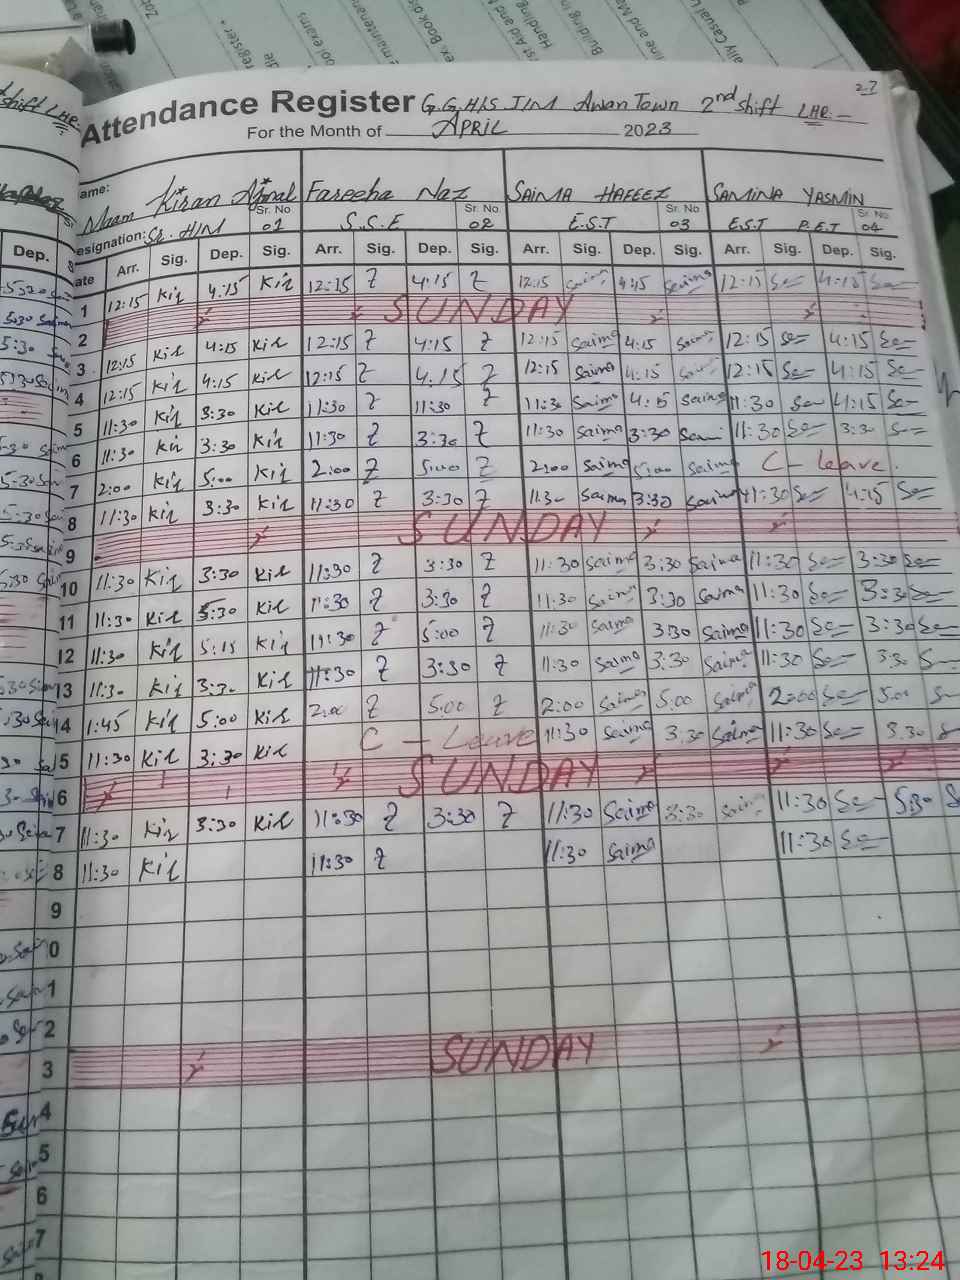 Attendance Register G.G.H/S J/M Awan Town 2nd shift LHR.
27
For the Month of APRIL 2023
Name: Kiran Fareeha Naz SAIMA HAFEEZ SAMINA YASMIN
Sr. No. Sr. No. Sr. No. Sr. No.
Designation: Sr. H/M 01 S.S.E 02 E.S.T 03 E.S.T 04
Date Arr. Sig. Dep. Sig. Arr. Sig. Dep. Sig. Arr. Sig. Dep. Sig. Arr. Sig. Dep. Sig.
1 12:15 Kir 4:15 Kir 12:15 Z 4:15 Z 12:15 Saima 4:15 Saima 12:15 Se 4:15 Se
2 SUNDAY
3 12:15 Kir 4:15 Kir 12:15 Z 4:15 Z 12:15 Saima 4:15 Saima 12:15 Se 4:15 Se
4 12:15 Kir 4:15 Kir 12:15 Z 4:15 Z 12:15 Saima 4:15 12:15 Se 4:15 Se
5 11:30 Kir 3:30 Kir 11:30 Z 11:30 Z 11:30 Saima 4:15 Saima 11:30 Se 4:15 Se
6 11:30 Kir 3:30 Kir 11:30 Z 3:30 Z 11:30 Saima 3:30 Saima 11:30 Se 3:30 Se
7 2:00 Kir 5:00 Kir 2:00 Z 5:00 Z 2:00 Saima 5:00 Saima C - leave.
8 11:30 Kir 3:30 Kir 11:30 Z 3:30 Z 11:30 Saima 3:30 Saima 11:30 Se 4:15 Se
9 SUNDAY
10 11:30 Kir 3:30 Kir 11:30 Z 3:30 Z 11:30 Saima 3:30 Saima 11:30 Se 3:30 Se
11 11:30 Kir 3:30 Kir 11:30 Z 3:30 Z 11:30 Saima 3:30 Saima 11:30 Se 3:30 Se
12 11:30 Kir 5:15 Kir 11:30 Z 5:00 Z 11:30 Saima 3:30 Saima 11:30 Se 3:30 Se
13 11:30 Kir 3:30 Kir 11:30 Z 3:30 Z 11:30 Saima 3:30 Saima 11:30 Se 3:30 S
14 1:45 Kir 5:00 Kir 2:00 Z 5:00 Z 2:00 Saima 5:00 Saima 2:00 Se 5:00 S
5 11:30 Kir 3:30 Kir C - Leave 11:30 Saima 3:30 Saima 11:30 Se 3:30 S
6 SUNDAY
7 11:30 Kir 3:30 Kir 11:30 Z 3:30 Z 11:30 Saima 3:30 Saima 11:30 Se 5:30 S
8 11:30 Kir 11:30 Z 11:30 Saima 11:30 Se
9
0
1
2
3 SUNDAY
4
5
6
7
18-04-23 13:24